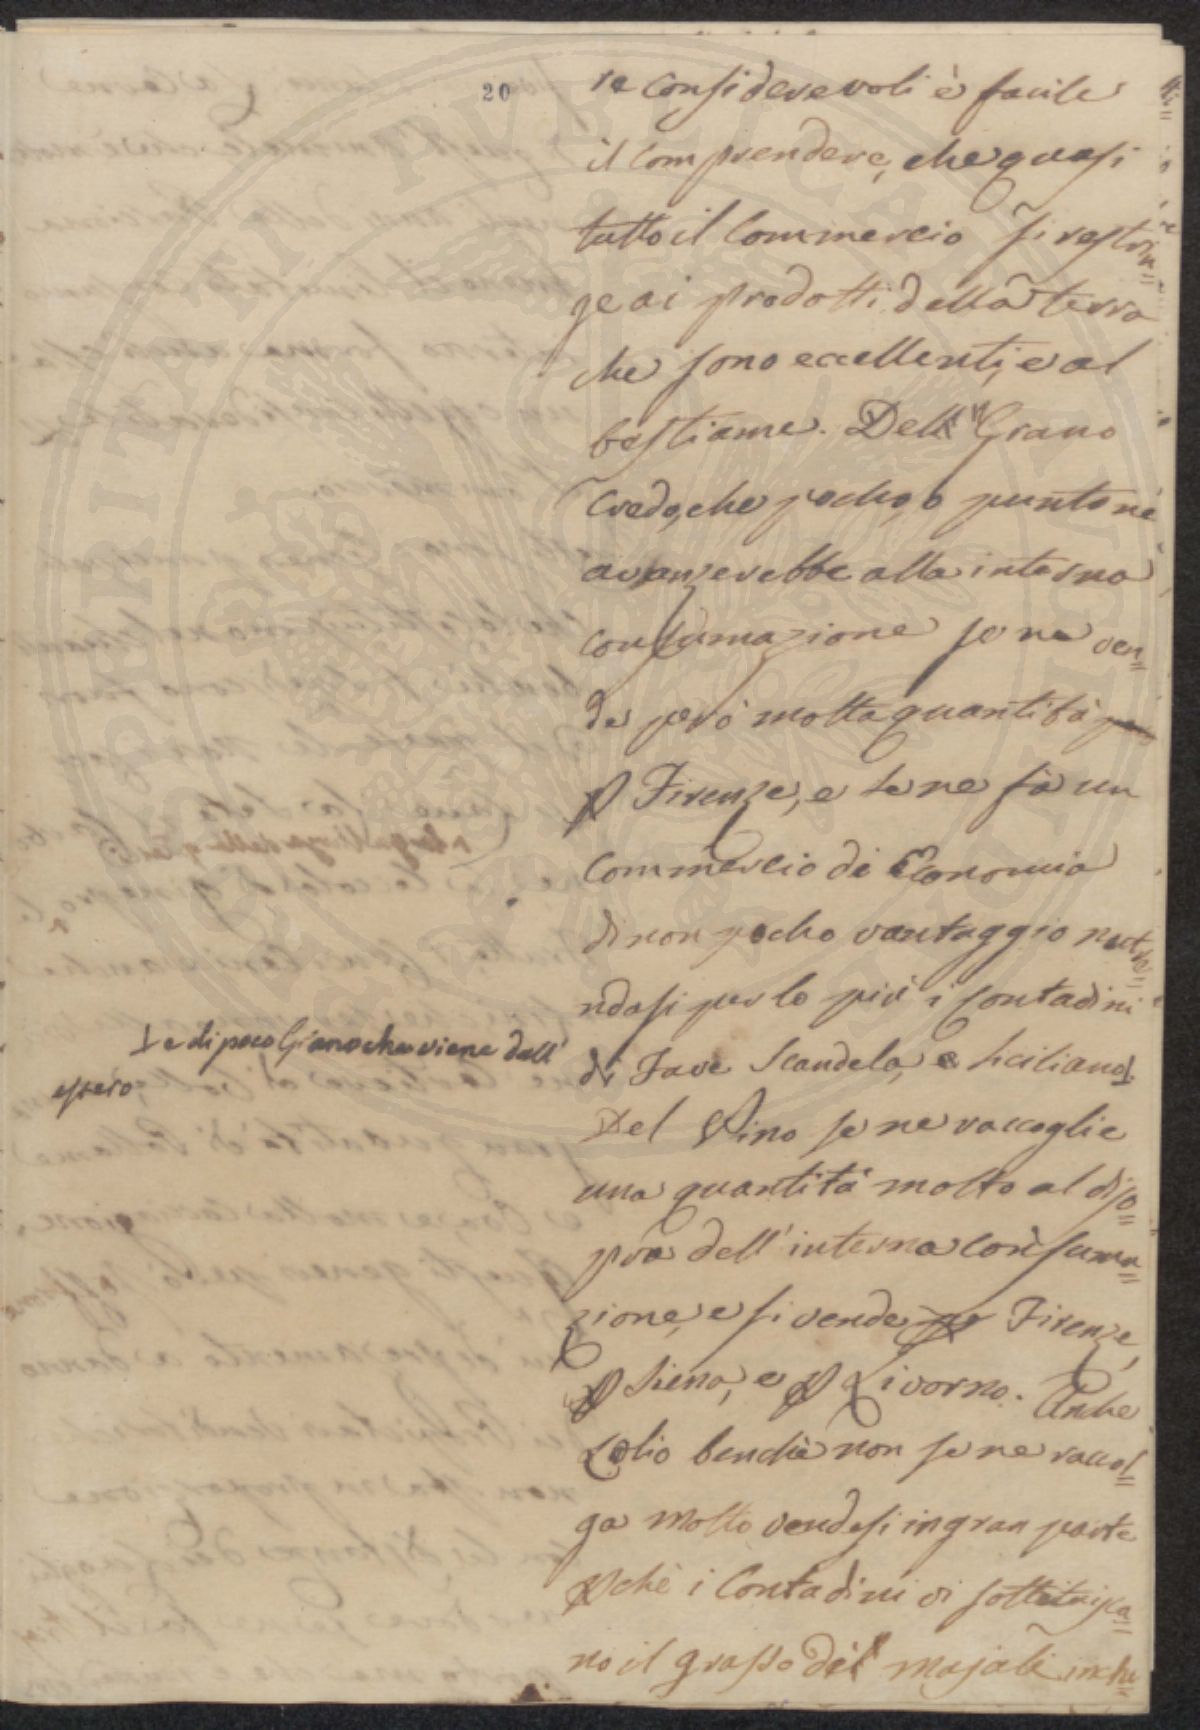 20
re considerevoli è facile
il comprendere, che quasi
tutto il Commercio si restrin=
ge ai prodotti della terra
che sono eccellenti, e al
bestiame. Dell Grano
credo, che poco, o punto ne
avanzerebbe alla interna
consumazione se ne ven=
de però molta quantità
p Firenze, e se ne fà un
Commercio di Economia
di non poco vantaggio nutre=
ndosi per lo più i Contadini
di Fave Scandela, e Siciliano
+ e di poco Grano che viene dall'
estero
Del Vino se ne raccoglie
una quantità molto al diso=
pra dell'interna consuma=
zione, e si vende p Firenze,
p Siena, e p Livorno. Anche
L'olio benchè non se ne raccol=
ga molto vendesi in gran parte
pchè i Contadini vi sostituisca=
no il grasso di majale inclu=